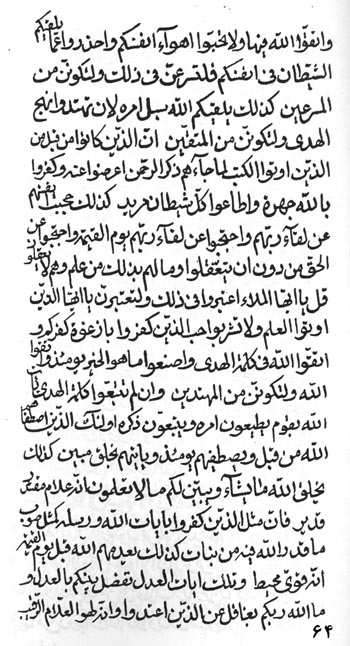 واتقوا الله فيها ولا تحبوا اهوآء انفسكم واحذروا عما يلقيكم
الشيطان فى انفسكم فلترعن فى ذلك ولتكونن من
المرعين كذلك يلقيكم الله سبل امره لان تهتدوا بانهج
الهدى ولتكونن من المتقين ان الذين كانوا من قبل من
الذين اوتوا الكتب لما جآءهم ذكر الرحمن اعرضوا عنه وكفروا
بالله جهرة واطاعوا كل شيطان مريد كذلك
عن لقآء ربهم واحتجبوا عن لقآء ربهم يوم القيمة واحتجبوا عن
الحق من دون ان يتعقلوا وما لهم بذلك من علم وهم لا يعقلون
قل يا ايها الملاء اعتبروا فى ذلك ولتعتبرن يا ايها الذين
اوتوا العلم ولا تتربوا حب الذين كفروا
اتقوا الله فى كلمة الهدى واصنعوا ما هو الخير يومئذ واتقوا
الله ولتكونن من المهتدين وان لم تتبعوا كلمة الهدى
الله بقوم يطيعون امره ويتبعون ذكره اولئك الذين اصطفاهم
الله من قبل ويصطفيهم يومئذ ويأتيهم بخلق مبين كذلك
يخلق الله ما يشآء ويبين لكم ما لا تعلمون انه علام مقتدر
قدير فان مثل الذين كفروا بايات الله ورسله كمثل صوب
ما قدر الله فيه من نبات كذلك يعدمهم الله قبل يوم القيمة
انه قوى محيط وتلك ايات العدل تفضل بينكم بالعدل و
ما الله ربكم بغافل عن الذين اعتدوا وانه لهو العلام الرقيب
۶۴